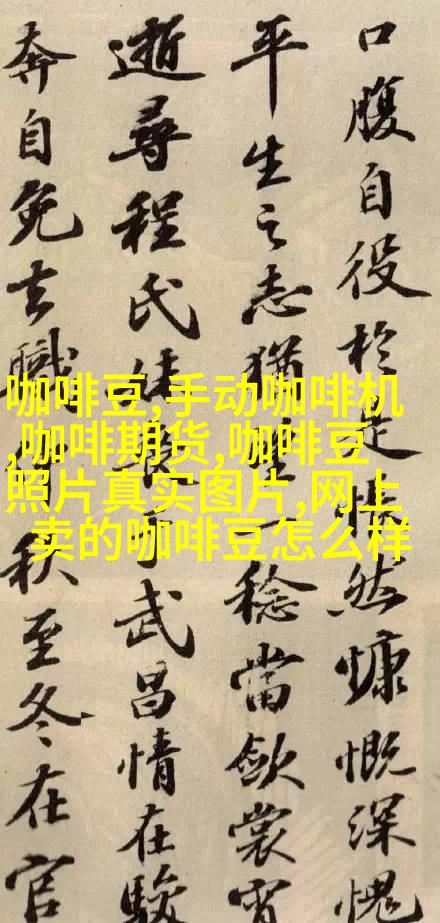 口腹自役於是悵然慷慨深愧
平生之志猶望一稔當斂裳宵
逝尋程氏妹喪于武昌情在駿
奔自免去職秋至冬在官
咖啡豆,手动咖啡机
,咖啡期货,咖啡豆
照片真实图片,网上
卖的咖啡豆怎么样